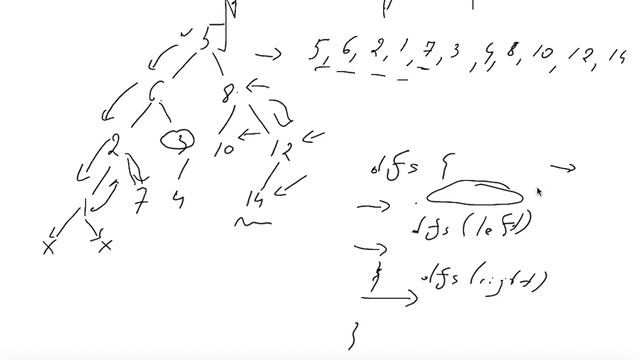 5 → 5, 6, 2, 1, 7, 3, 4, 8, 10, 12, 14
6 8
2 3 10 12
1 7 4 14
x x
dfs {
dfs (left)
dfs (right)
}